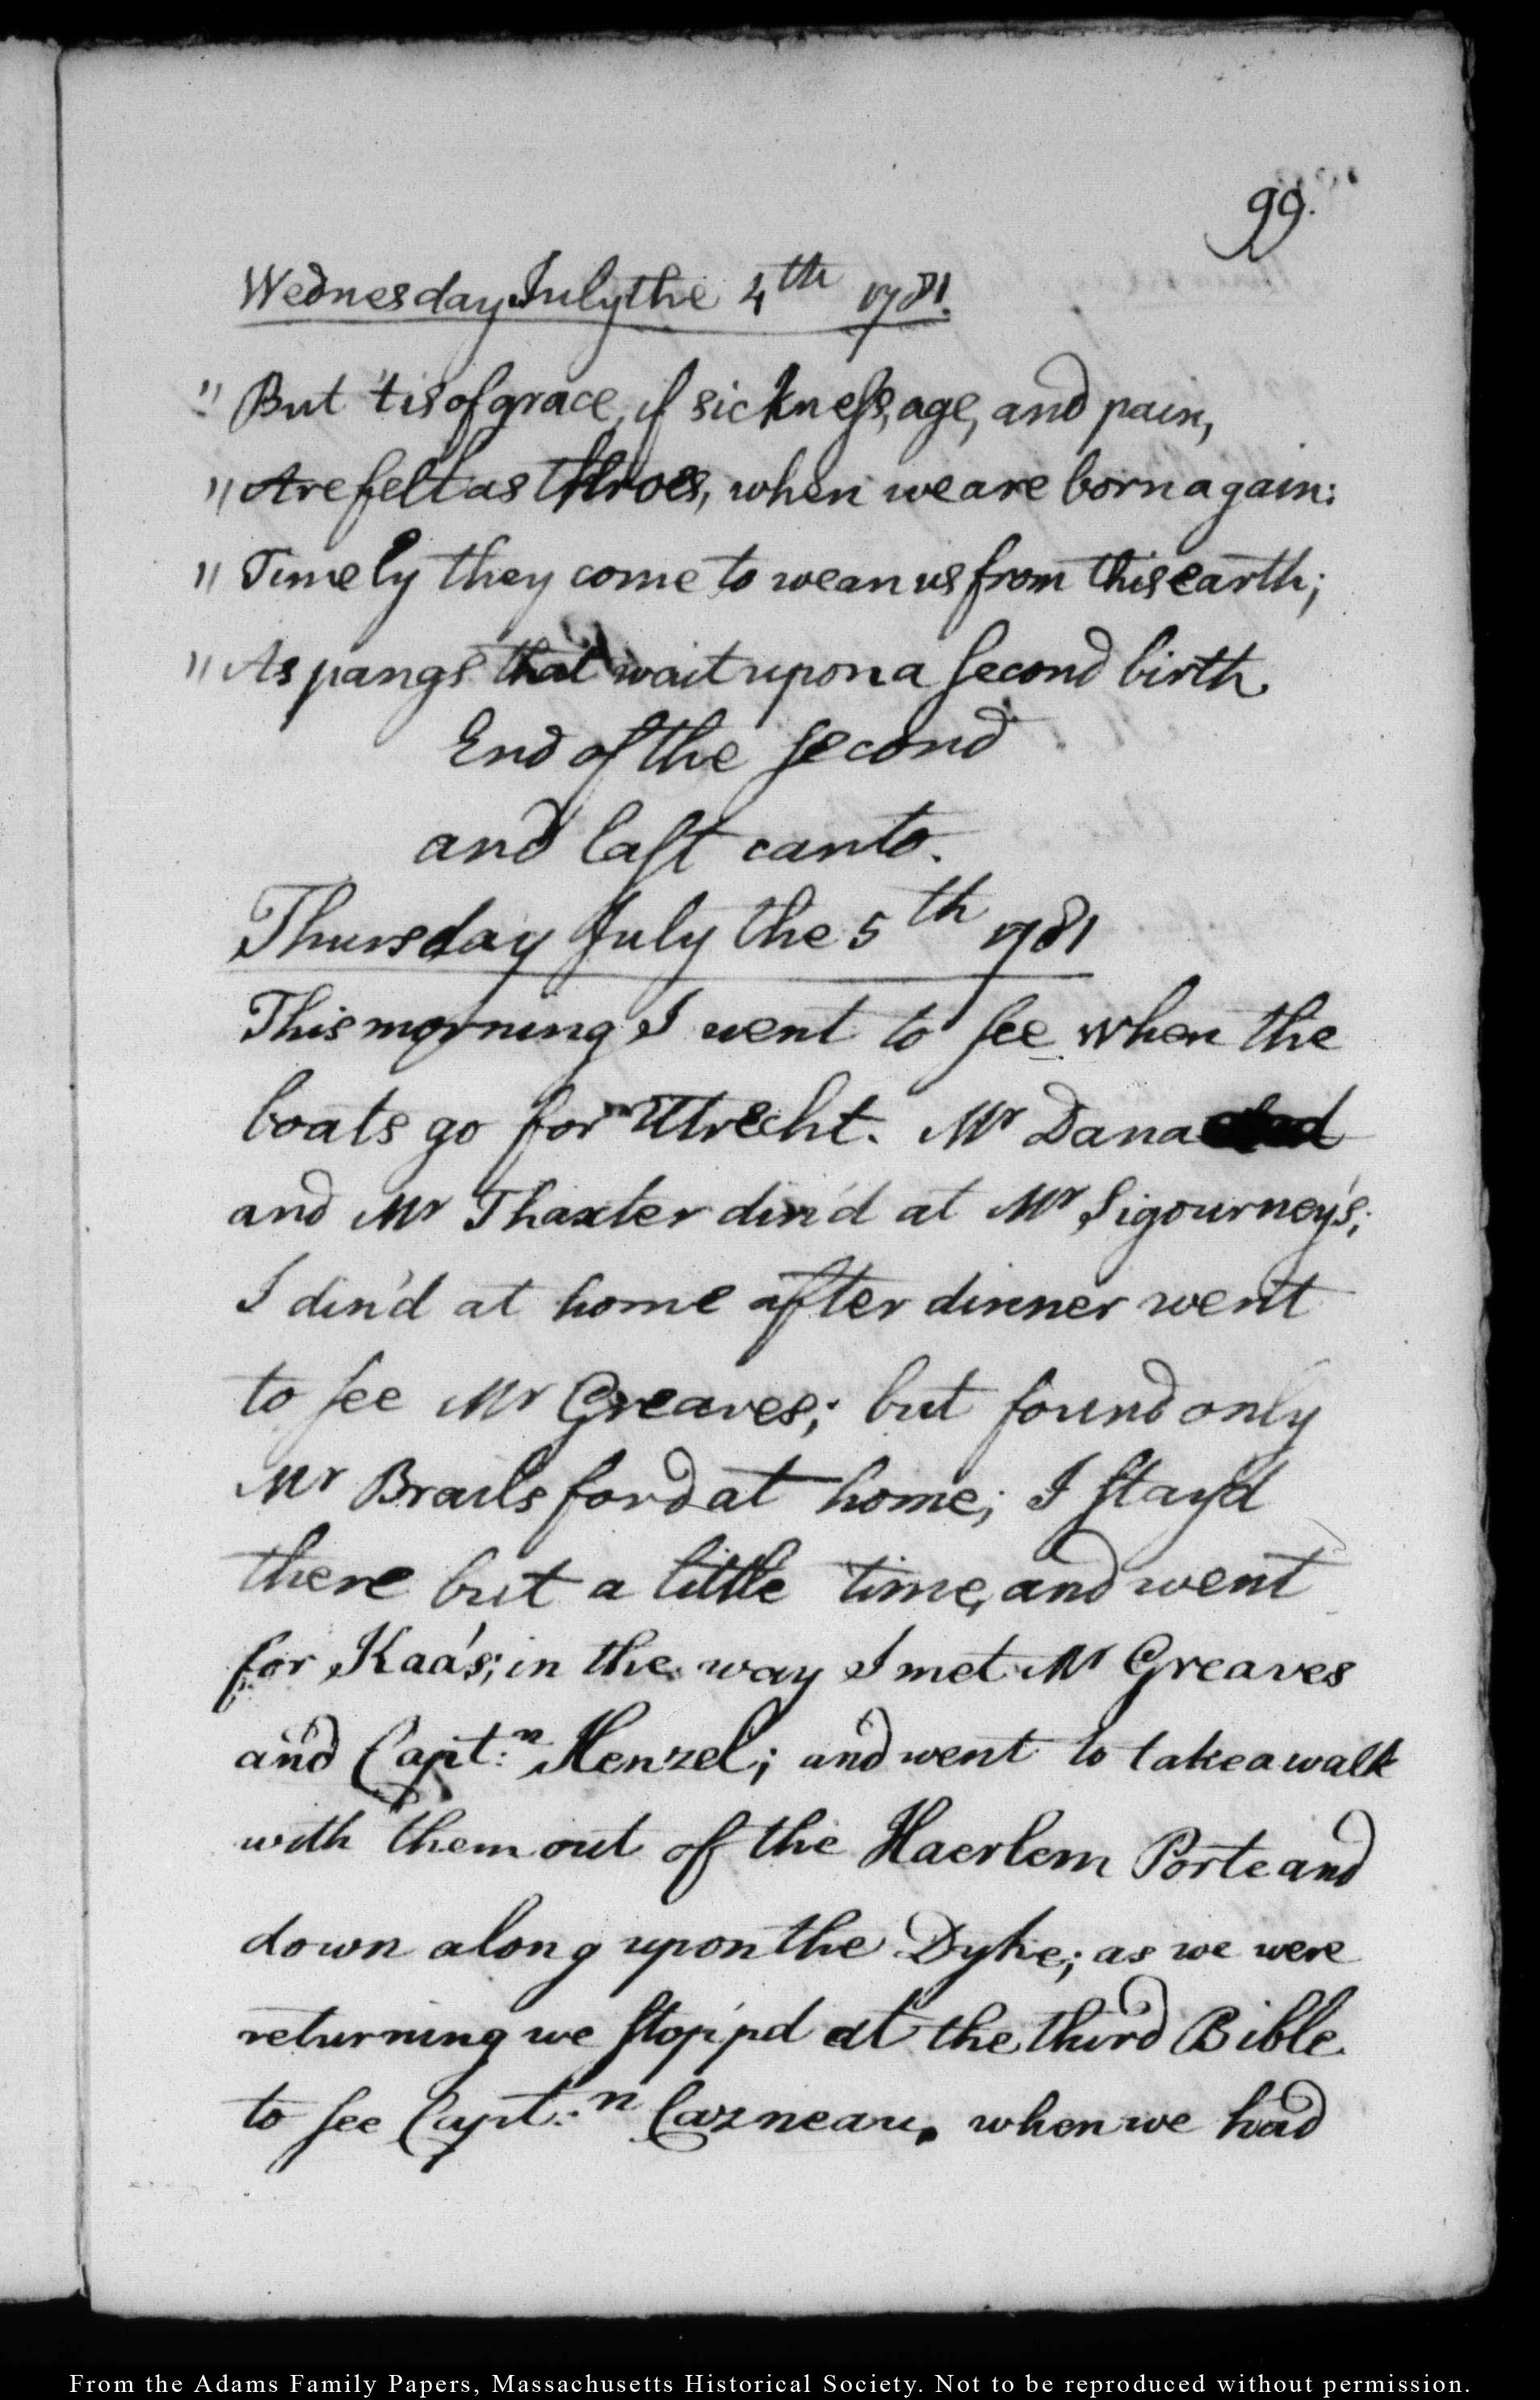 99.
Wednesday July the 4th 1781.
" But 'tis of grace, if sickness, age, and pain,
" Are felt as throes, when we are born again:
" Timely they come to wean us from this earth;
" As pangs that wait upon a second birth.
End of the second
and last canto.
Thursday July the 5th 1781
This morning I went to see when the
boats go for Utrecht. Mr Dana
and Mr Thaxter din'd at Mr Sigourney's;
I din'd at home after dinner went
to see Mr Greaves; but found only
Mr Brailsford at home; I stay'd
there but a little time, and went
for Kaa's; in the way I met Mr Greaves
and Capt:n Henzel; and went to take a walk
with them out of the Haerlem Porte and
down along upon the Dyke; as we were
returning we stop'pd at the third Bible
to see Capt:n Cazneau, when we had
From the Adams Family Papers, Massachusetts Historical Society. Not to be reproduced without permission.